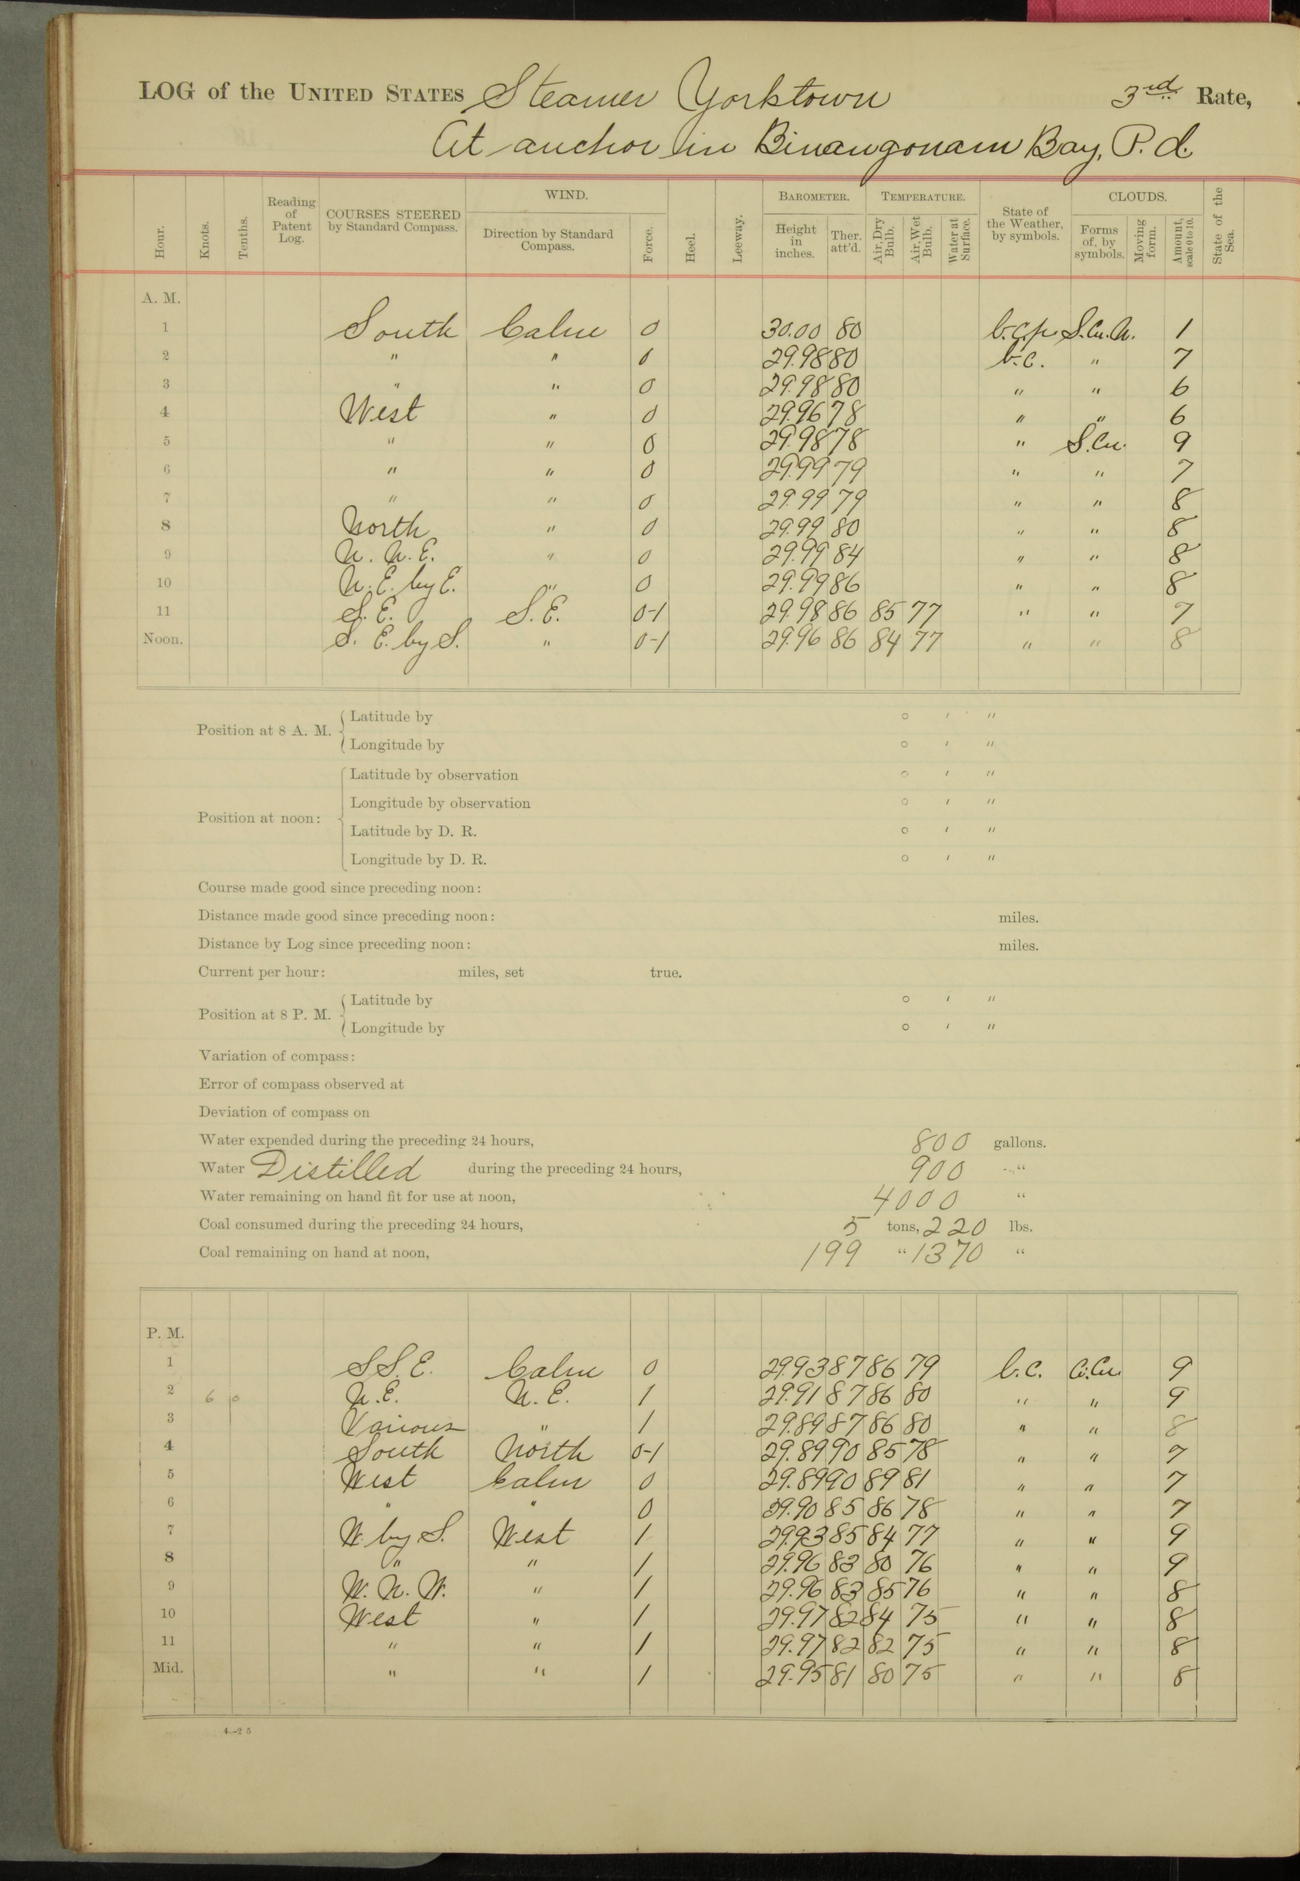 LOG of the UNITED STATES Steamer Yorktown 3rd Rate,
At anchor in Binangonam Bay, P. I.
Hour. Knots. Tenths. Reading of Patent Log. COURSES STEERED by Standard Compass. WIND. Direction by Standard Compass. Force. Heel. Leeway. BAROMETER. Height in inches. Ther. att'd. TEMPERATURE. Air, Dry Bulb. Air, Wet Bulb. Water at Surface. State of the Weather, by symbols. CLOUDS. Forms of, by symbols. Moving form. Amount, scale 0 to 10. State of the Sea.
A. M.
1 South Calm 0 30.00 80 b.c.p. S.Cu.N. 1
2 " " 0 29.98 80 b.c. " 7
3 " " 0 29.98 80 " " 6
4 West " 0 29.96 78 " " 6
5 " " 0 29.98 78 " S.Cu. 9
6 " " 0 29.99 79 " " 7
7 " " 0 29.99 79 " " 8
8 North " 0 29.99 80 " " 8
9 N. N. E. " 0 29.99 84 " " 8
10 N. E. by E. " 0 29.99 86 " " 8
11 S. E. S. E. 0-1 29.98 86 85 77 " " 7
Noon. S. E. by S. " 0-1 29.96 86 84 77 " " 8
Position at 8 A. M. Latitude by ° ' "
Longitude by ° ' "
Latitude by observation ° ' "
Longitude by observation ° ' "
Position at noon:
Latitude by D. R. ° ' "
Longitude by D. R. ° ' "
Course made good since preceding noon:
Distance made good since preceding noon: miles.
Distance by Log since preceding noon: miles.
Current per hour: miles, set true.
Position at 8 P. M. Latitude by ° ' "
Longitude by ° ' "
Variation of compass:
Error of compass observed at
Deviation of compass on
Water expended during the preceding 24 hours, 800 gallons.
Water Distilled during the preceding 24 hours, 900 "
Water remaining on hand fit for use at noon, 4000 "
Coal consumed during the preceding 24 hours, 5 tons, 220 lbs.
Coal remaining on hand at noon, 199 " 1370 "
P. M.
1 S.S.E. Calm 0 29.93 87 86 79 b.c. Ci.Cu. 9
2 6 0 N.E. N. E. 1 29.91 87 86 80 " " 9
3 Various " 1 29.89 87 86 80 " " 8
4 South North 0-1 29.89 90 85 78 " " 7
5 West Calm 0 29.89 90 89 81 " " 7
6 " " 0 29.90 85 86 78 " " 7
7 W. by S. West 1 29.93 85 84 77 " " 9
8 " " 1 29.96 83 80 76 " " 9
9 W. N. W. " 1 29.96 83 85 76 " " 8
10 West " 1 29.97 82 84 75 " " 8
11 " " 1 29.97 82 82 75 " " 8
Mid. " " 1 29.95 81 80 75 " " 8
4—25